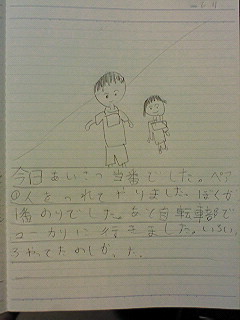 今日あいさつ当番でした。ペア
の人をつれてやりました。ぼくが
1番のりでした。あと自転車部で
ユーカリに行きました。いろい
ろやってたのしかった。